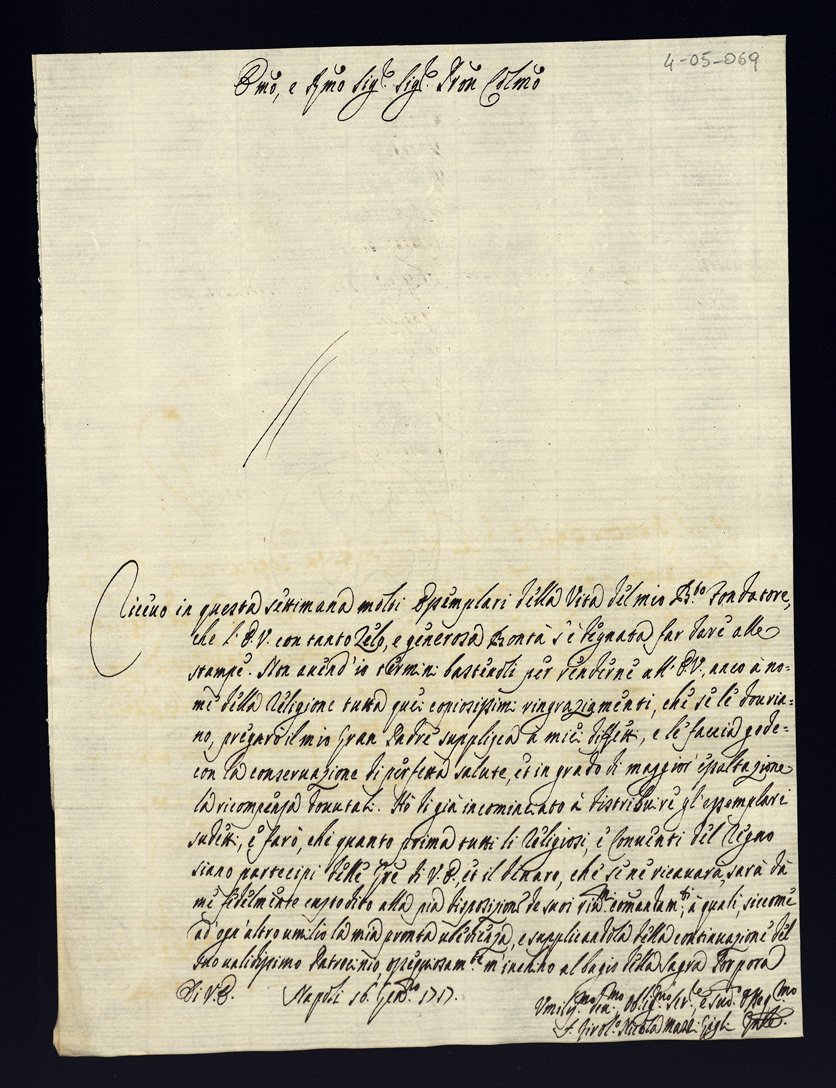 4-05-069
Emo, e Rmo Sigr. Sigr. Pron Colmo
Ricevo in questa settimana molti esemplari della Vita del mio Bto Fondatore,
che l'E.V. con tanto zelo, e generosa Bontà s'è degnata far dare alle
stampe. Non avend'io termini bastevoli per renderne all'E.V. anco à no-
me della Religione tutta quei copiosissimi ringraziamenti, che se le dovria-
no, pregarò il mio Gran Padre supplisca à miei difetti, e le faccia gode-
con la conservazione di perfetta salute, et in grado di maggior esaltazione
la ricompensa. Hò di già incominciato à distribuire gl'esemplari
sudetti, e farò, che quanto prima tutti li Religiosi, e Conventi del Regno
siano partecipi delle Gre di V.E., et il denaro, che se ne ricavarà, sarà da
me fedelmente custodito alla pia disposizione de suoi rivmi comandamti, à quali, siccome
ad ogn'altro umilio la mia pronta ubbidienza, e supplicandola della continuazione del
suo validissimo Patrocinio, ossequiosamte m'inchino al bagio della Sagra Porpora
di V.E. Napoli 16. Genro 1717.
Umilissmo Devmo Obligmo Serre, e Sudo Osseqmo
F. Girolo Nicola Gigli Gnle.